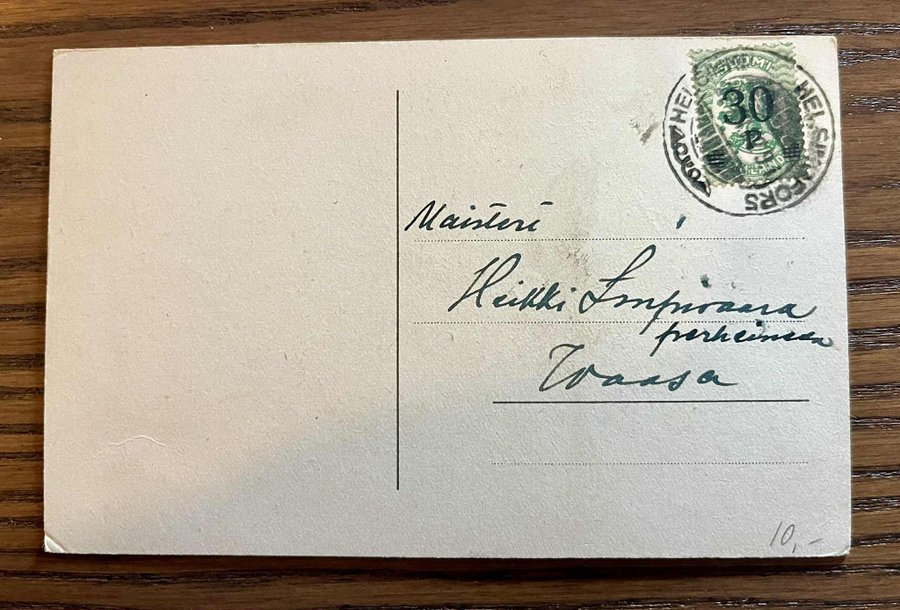 30
P
SUOMI
HELSINGFORS
Maisteri
Heikki Impivaara
perheineen
Waasa
10,-